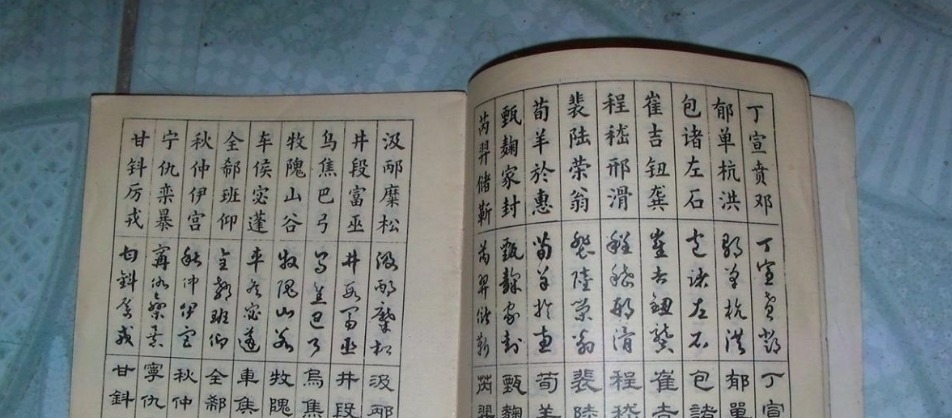 丁宣贲邓
郁单杭洪
包诸左石
崔吉钮龚
程嵇邢滑
裴陆荣翁
荀羊於惠
甄麹家封
芮羿储靳
丁宣賁鄧
郁單杭洪
包諸左石
崔吉鈕龔
程嵇邢滑
裴陸榮翁
荀羊於惠
甄麹家封
芮羿儲靳
丁宣
郁單
包諸
崔吉
程嵇
裴陸
荀羊
甄麹
芮羿
汲邴糜松
井段富巫
乌焦巴弓
牧隗山谷
车侯宓蓬
全郗班仰
秋仲伊宫
宁仇栾暴
甘钭厉戎
汲邴糜松
井段富巫
烏焦巴弓
牧隗山谷
車侯宓蓬
全郗班仰
秋仲伊宮
寧仇欒暴
甘鈄厲戎
汲邴
井段
烏焦
牧隗
車侯
全郗
秋仲
寧仇
甘鈄